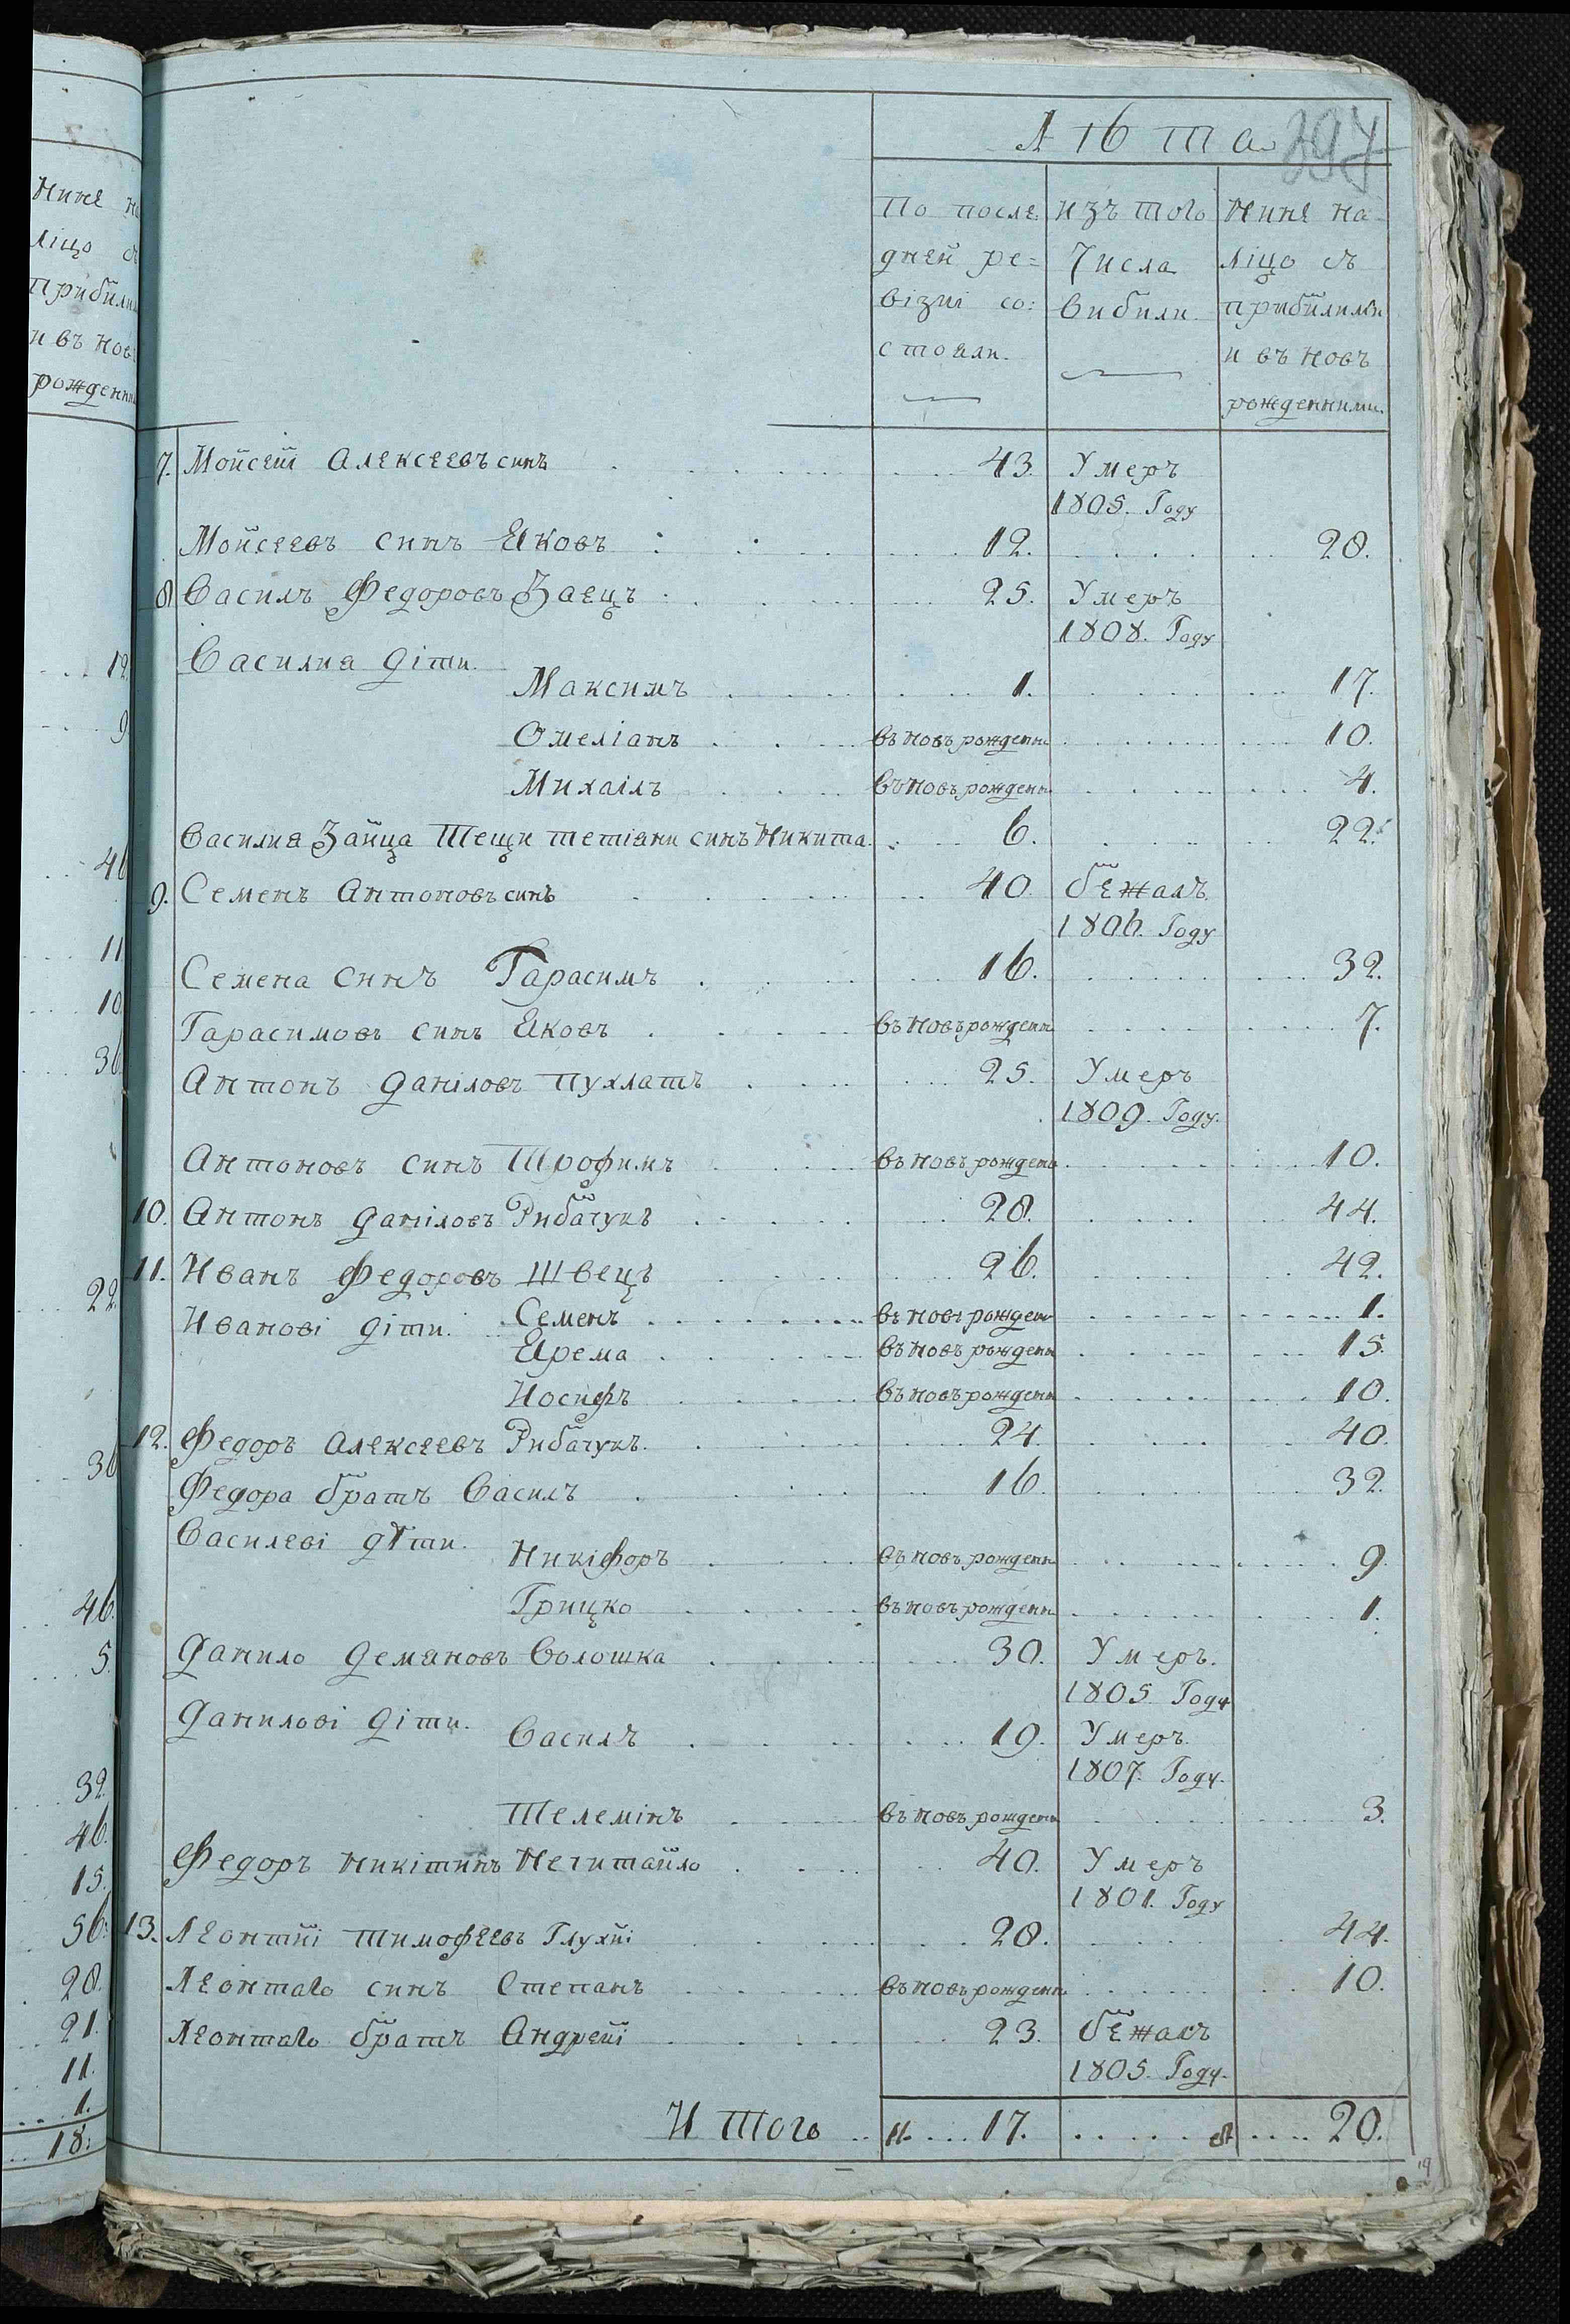 Лѣта 397
По после: изъ того Нинѣ на
дней ре= Числа ліцо съ
візиі со: вибили прибилими
стояли. и въ новъ
рожденними.
7. Мойсей Алексеевъ синъ 43. Умеръ
1805. Году
Мойсеевъ синъ Яковъ 12. 28.
8 Василъ Федоровъ Заецъ 25. Умеръ
1808. Году
Василия діти.
Максимъ 1. 17.
Омеліанъ въ новъ рожденн 10.
Михаілъ въ новъ рожденн 4.
Василия Зайца Тещи тетіани синъ Никита 6. 22.
9. Семенъ Антоновъ синъ 40. бежалъ
1806. Году
Семена синъ Гарасимъ 16. 32.
Гарасимовъ синъ Яковъ въ новъ рожденн 7.
Антонъ Даніловъ Пухлатъ 25. Умеръ
1809. Году.
Антоновъ синъ Трофимъ въ новъ рожденн 10.
10. Антонъ Даніловъ Рибачукъ 28. 44.
11. Иванъ Федоровъ Швецъ 26. 42.
Иванові діти. Семенъ въ новъ рожденн 1.
Ярема въ новъ рожденн 15.
Иосифъ въ новъ рожденн 10.
12. Федоръ Алексеевъ Рибачукъ. 24. 40.
Федора братъ Василъ 16. 32.
Василеві діти.
Никіфоръ въ новъ рожденн 9.
Грицко въ новъ рожденн 1.
Данило Демяновъ Волошка 30. Умеръ.
1805. Году
Данилові діти.
Василъ 19. Умеръ.
1807. Году.
Телемінъ въ новъ рожденн 3.
Федоръ Никітинъ Нечитайло 40. Умеръ
1801. Году
13. Леонтій Тимофеевъ Глухиі 28. 44.
Леонтаго синъ Степанъ въ новъ рожденн 10.
Леонтаго братъ Андреиі 23. бежалъ
1805. Году.
И Того 17. 20.
Нинѣ на
ліцо съ
прибилим
и въ новъ
рожденни
12.
9
46
11
10
36.
22.
36
46.
5.
32.
46.
15.
56.
28.
21.
11.
1.
18.